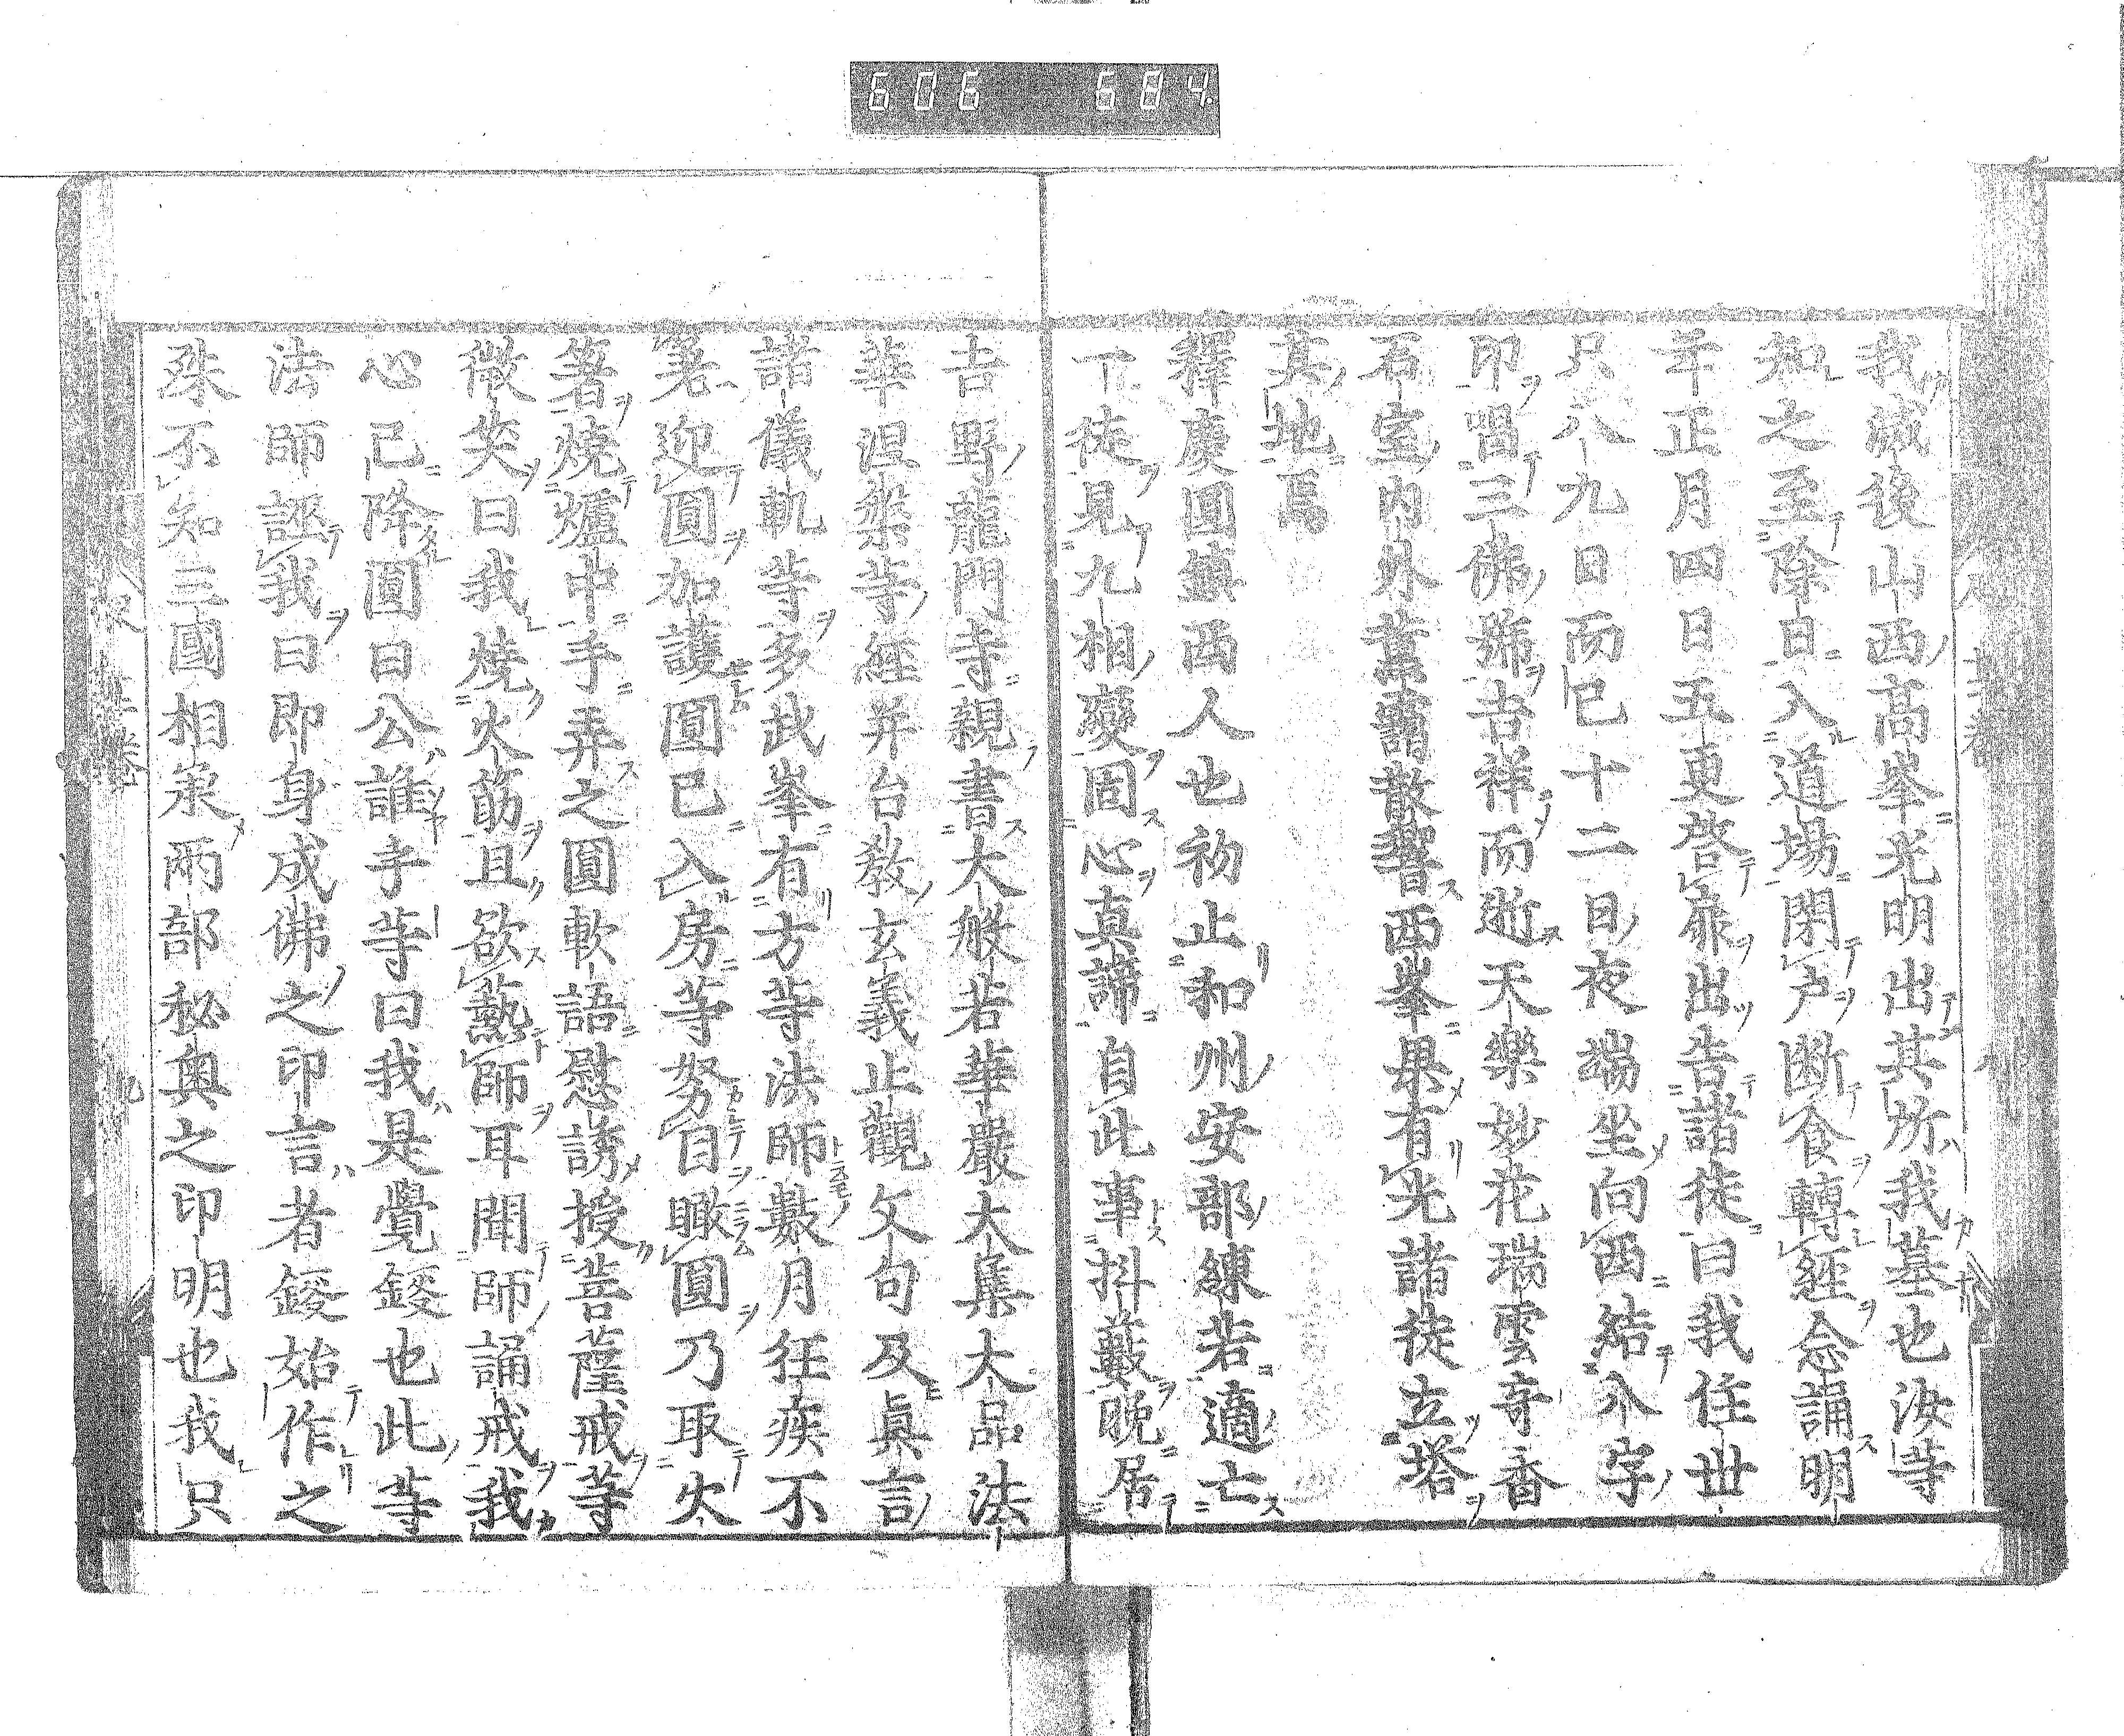 606 684
我滅後山西高峯光明出其所我墓也汝等
知之至除日入道場閉戸断食轉經念誦明
年正月四日五更啓扉出告諸徒曰我住世
只八九日而已十二日夜端坐向西結八字
印唱三佛號吉祥而逝天樂妙花瑞雲奇香
石室内外薫靄散響西峯果有光諸徒立塔
其地焉
釋慶圓鎮西人也初止和州安部練若適亡
一徒見九相變固心真諦自此事抖藪晩居
吉野龍門寺親書大般若華嚴大集大品法
華涅槃等經并台教玄義止觀文句及眞言
諸儀軌等多武峯有方等法師數月狂疾不
差迎圓加護圓已入房等努目瞰圓乃取火
箸燒爐中手弄之圓軟語慰誘授菩薩戒等
微笑曰我燒火筋且欲爇師耳聞師誦戒我
心已降圓曰公誰乎等曰我是覺鑁也此等
法師誣我曰即身成佛之印言者鑁始作之
殊不知三國相承兩部秘奥之印明也我只